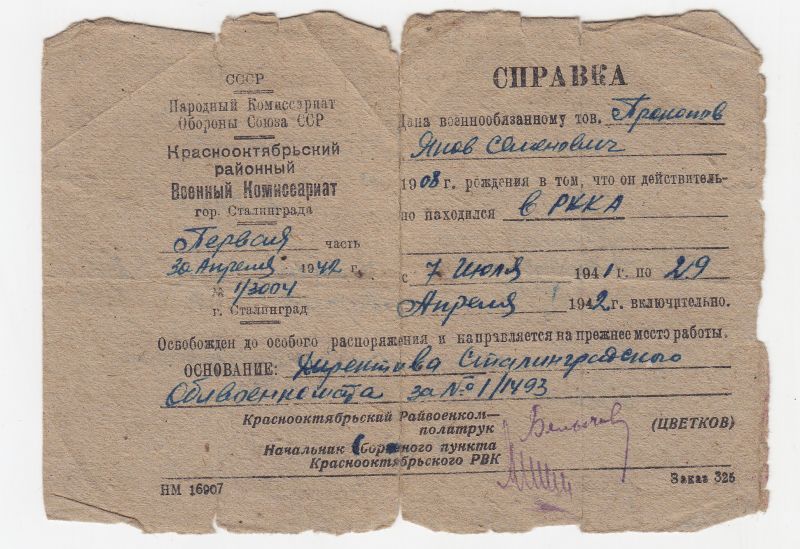 СССР
Народный Комиссариат
Обороны Союза ССР
Краснооктябрьский
районный
Военный Комиссариат
гор. Сталинграда
Первая часть
30 Апреля 1942 г.
№ 1/3004
г. Сталинград
СПРАВКА
Дана военнообязанному тов. Прокопов
Яков Семенович
1908 г. рождения в том, что он действитель-
но находился в РККА
с 7 Июля 1941 г. по 29
Апреля 1942 г. включительно.
Освобожден до особого распоряжения и направляется на прежнее место работы.
ОСНОВАНИЕ: Директива Сталинградского
Облвоенкомата за № 1/1493
Краснооктябрьский Райвоенком—
политрук (ЦВЕТКОВ)
Начальник Сборного пункта
Краснооктябрьского РВК
НМ 16907
Заказ 325